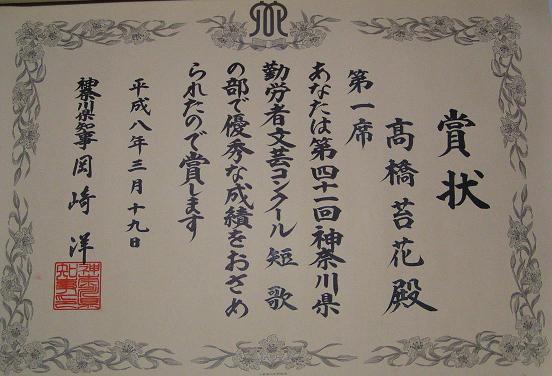 賞状
第一席
高橋苔花殿
あなたは第四十一回神奈川県
勤労者文芸コンクール短歌
の部で優秀な成績をおさめ
られたので賞します
平成八年三月十九日
神奈川県知事 岡崎洋